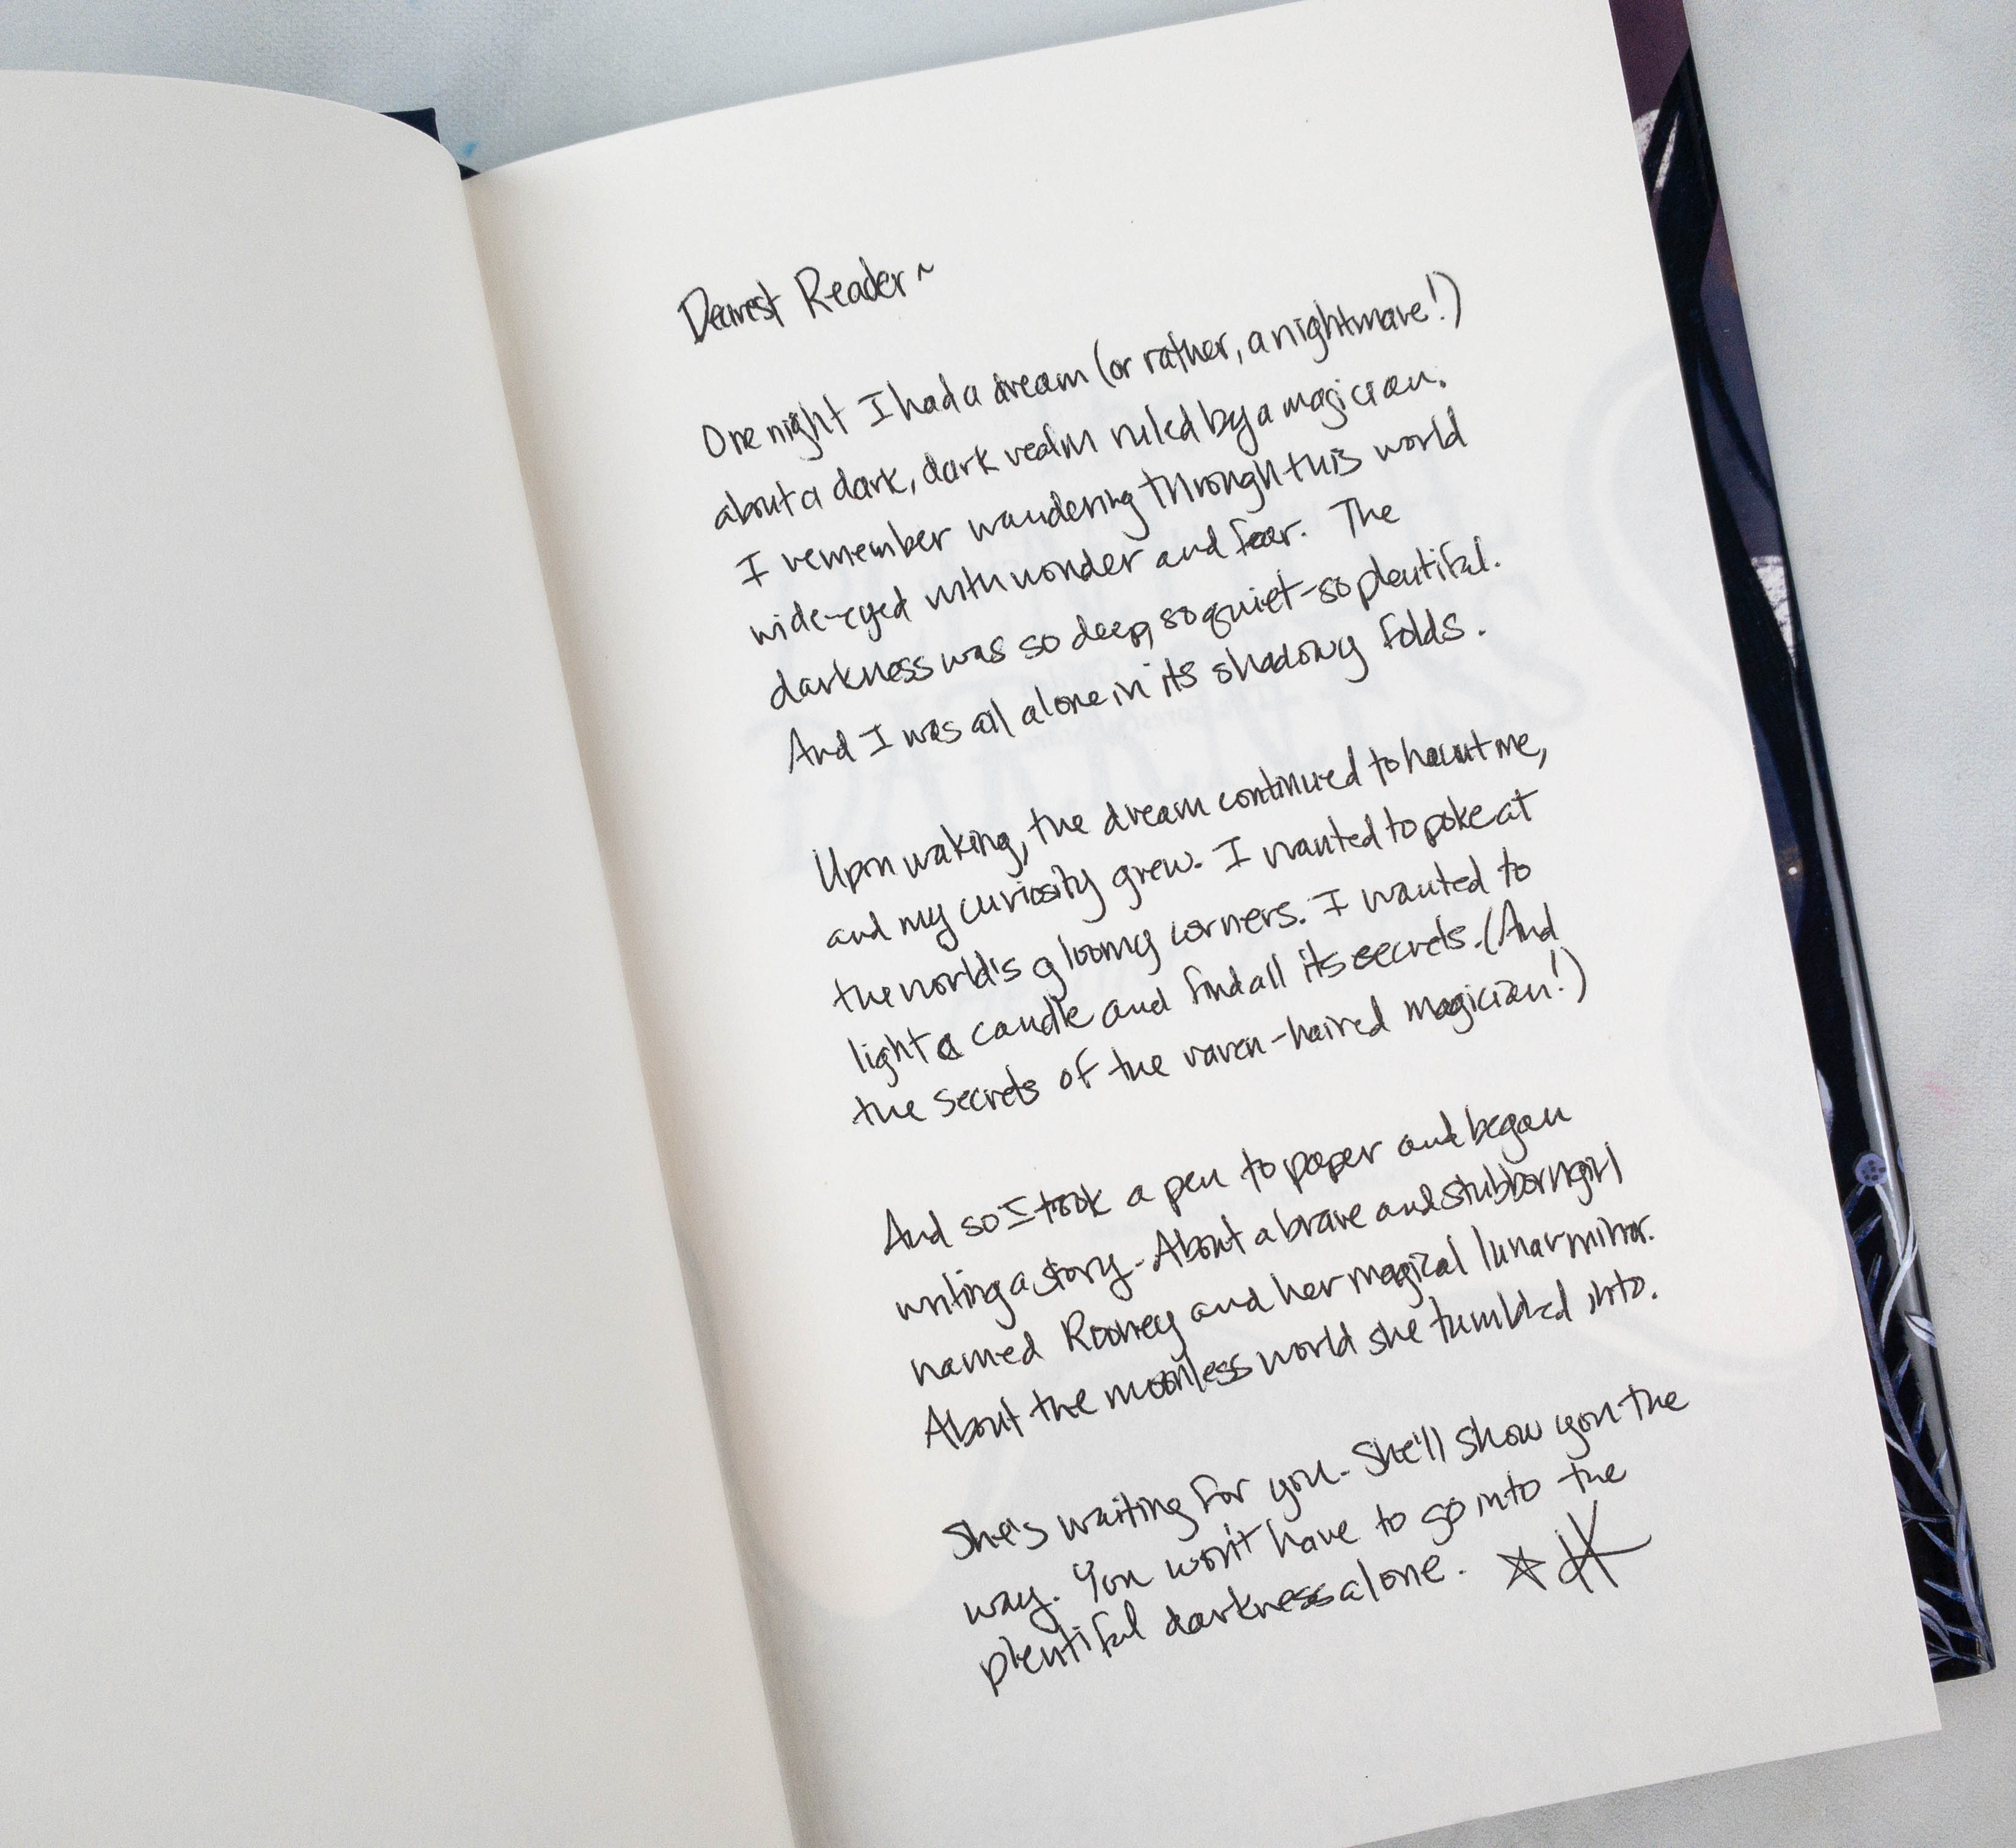 Dearest Reader~
One night I had a dream (or rather, a nightmare!)
about a dark, dark realm ruled by a magician.
I remember wandering through this world
wide-eyed with wonder and fear. The
darkness was so deep, so quiet-so plentiful.
And I was all alone in its shadowy folds.
Upon waking, the dream continued to haunt me,
and my curiosity grew. I wanted to poke at
the world's gloomy corners. I wanted to
light a candle and find all its secrets. (And
the secrets of the raven-haired magician!)
And so I took a pen to paper and began
writing a story. About a brave and stubborn girl
named Rooney and her magical lunar mirror.
About the moonless world she tumbled into.
She's waiting for you. She'll show you the
way. You won't have to go into the
plentiful darkness alone.